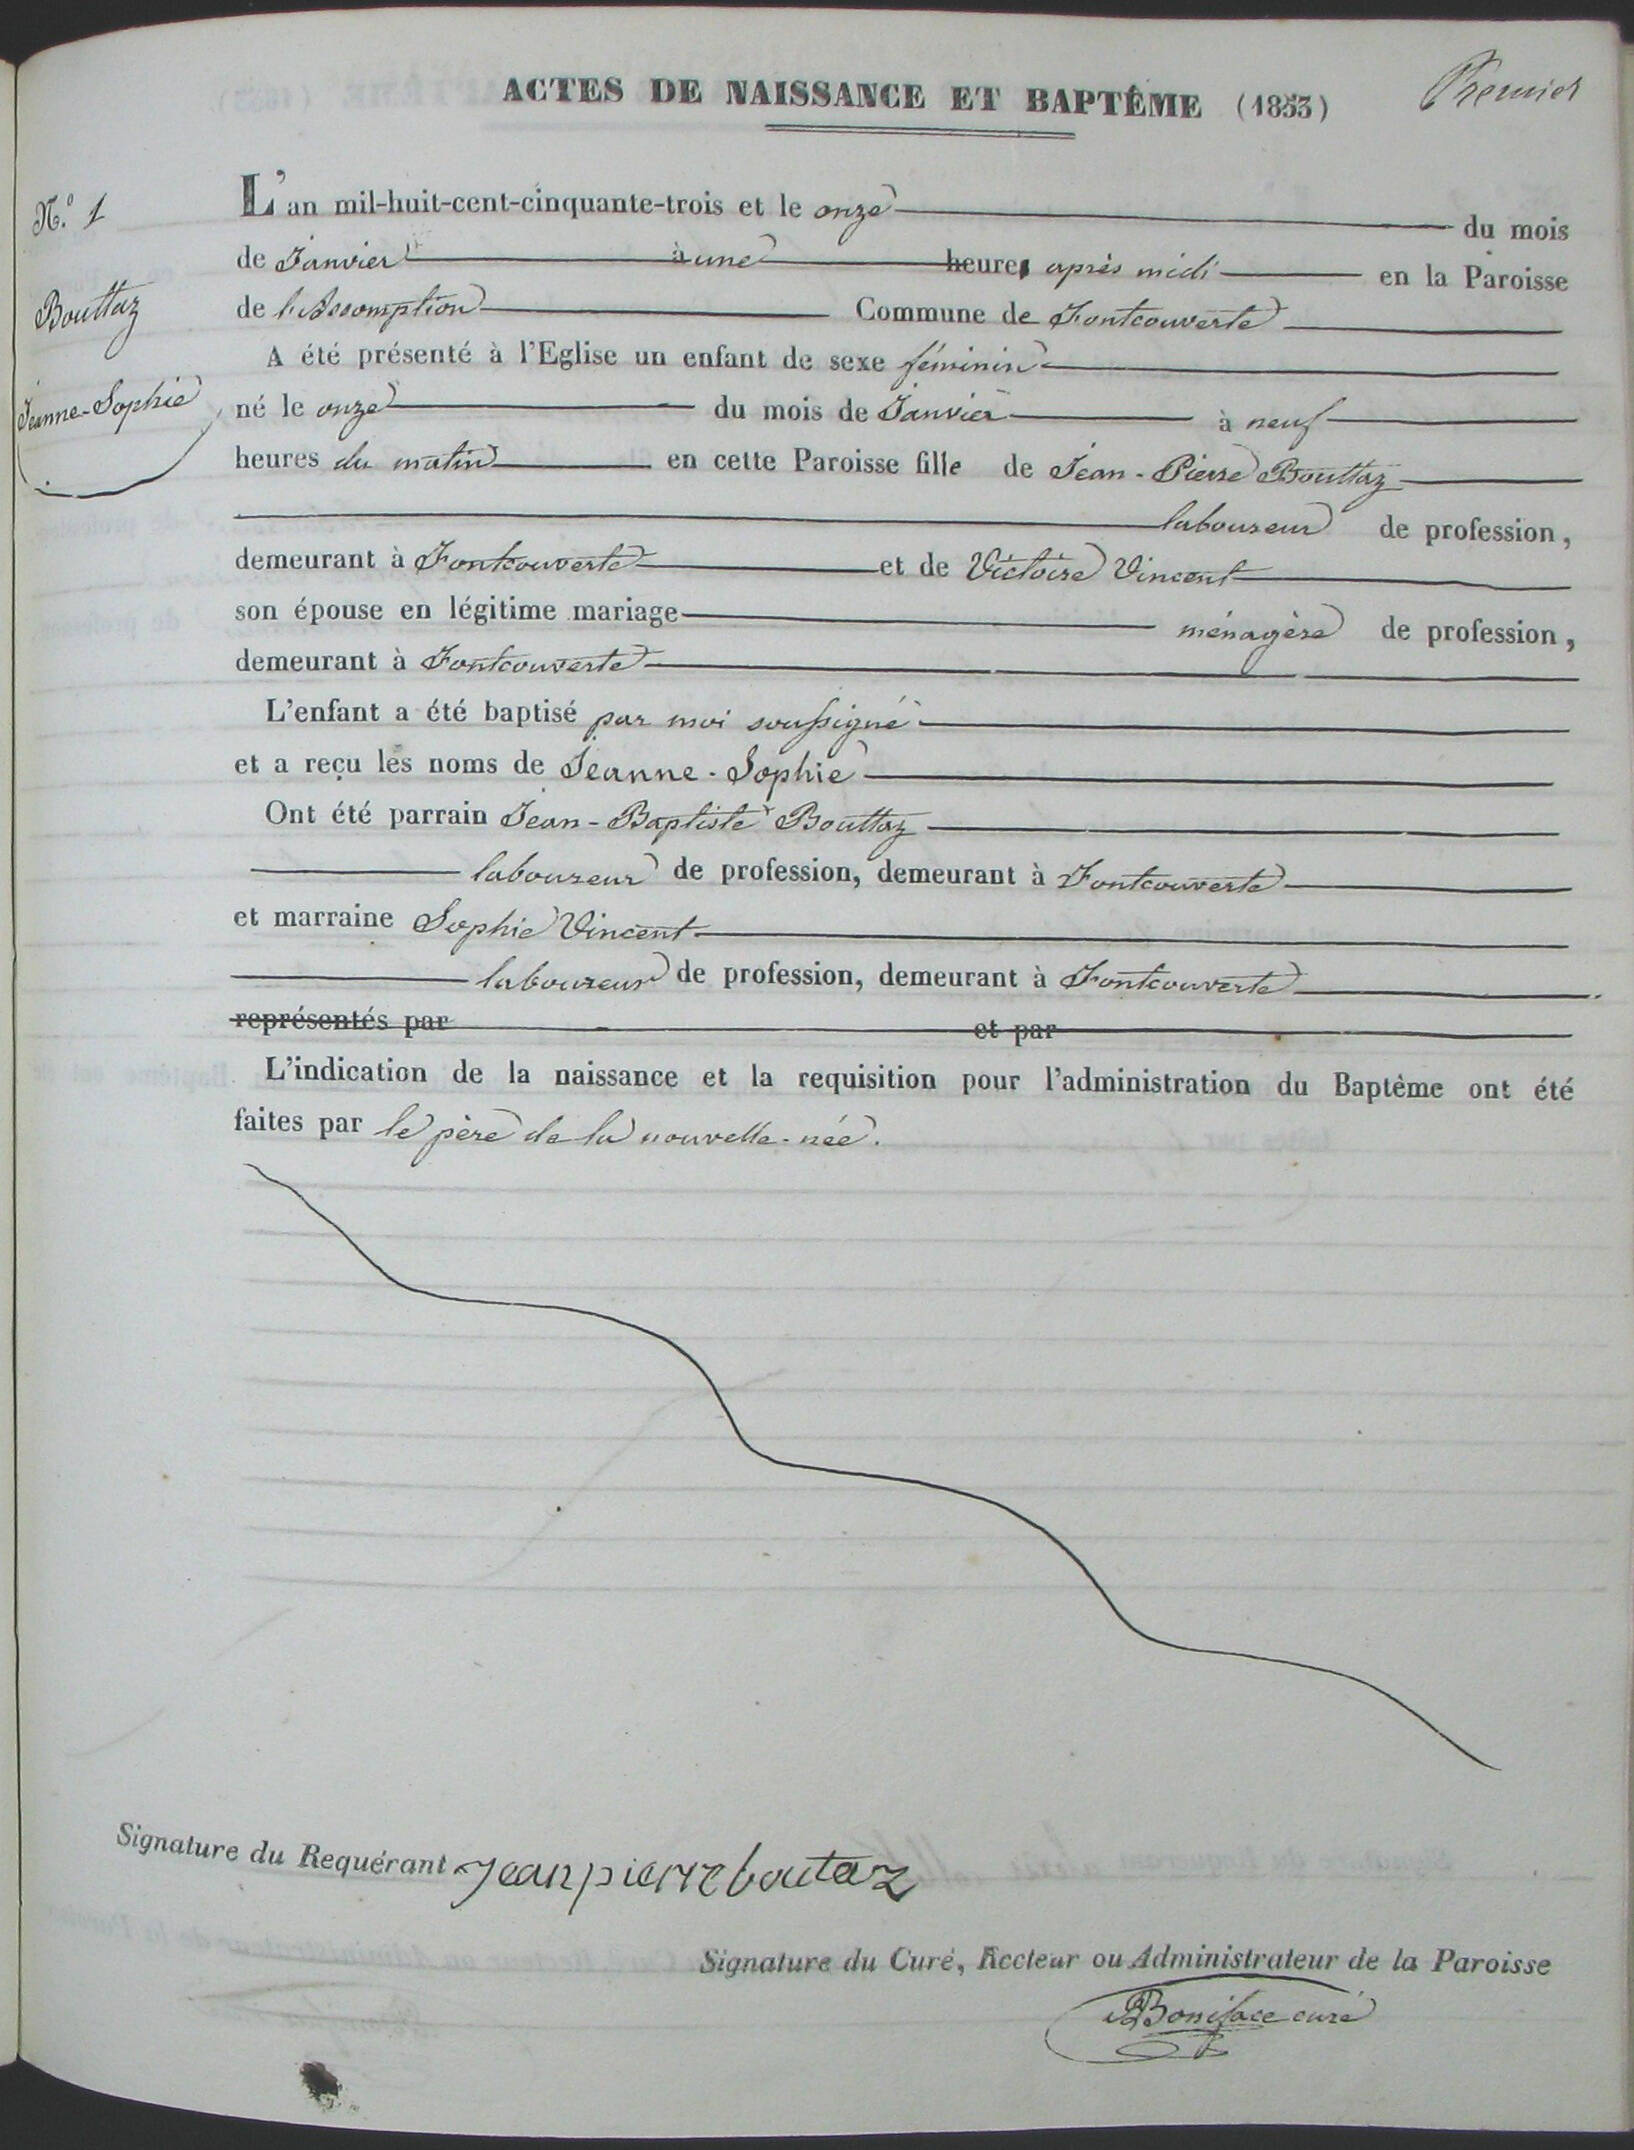 ACTES DE NAISSANCE ET BAPTÊME (1853)
Premier
N.º 1
Bouttaz
Jeanne-Sophie
L'an mil-huit-cent-cinquante-trois et le onze du mois
de Janvier à une heure après midi en la Paroisse
de l'Assomption Commune de Fontcouverte
A été présenté à l'Eglise un enfant de sexe féminin
né le onze du mois de Janvier à neuf
heures du matin en cette Paroisse fille de Jean-Pierre Bouttaz
laboureur de profession,
demeurant à Fontcouverte et de Victoire Vincent
son épouse en légitime mariage ménagère de profession,
demeurant à Fontcouverte
L'enfant a été baptisé par moi soussigné
et a reçu les noms de Jeanne-Sophie
Ont été parrain Jean-Baptiste Bouttaz
laboureur de profession, demeurant à Fontcouverte
et marraine Sophie Vincent
laboureur de profession, demeurant à Fontcouverte
représentés par et par
L'indication de la naissance et la requisition pour l'administration du Baptème ont été
faites par le père de la nouvelle-née.
Signature du Requérant jean pierre boutaz
Signature du Curé, Recteur ou Administrateur de la Paroisse
Boniface curé